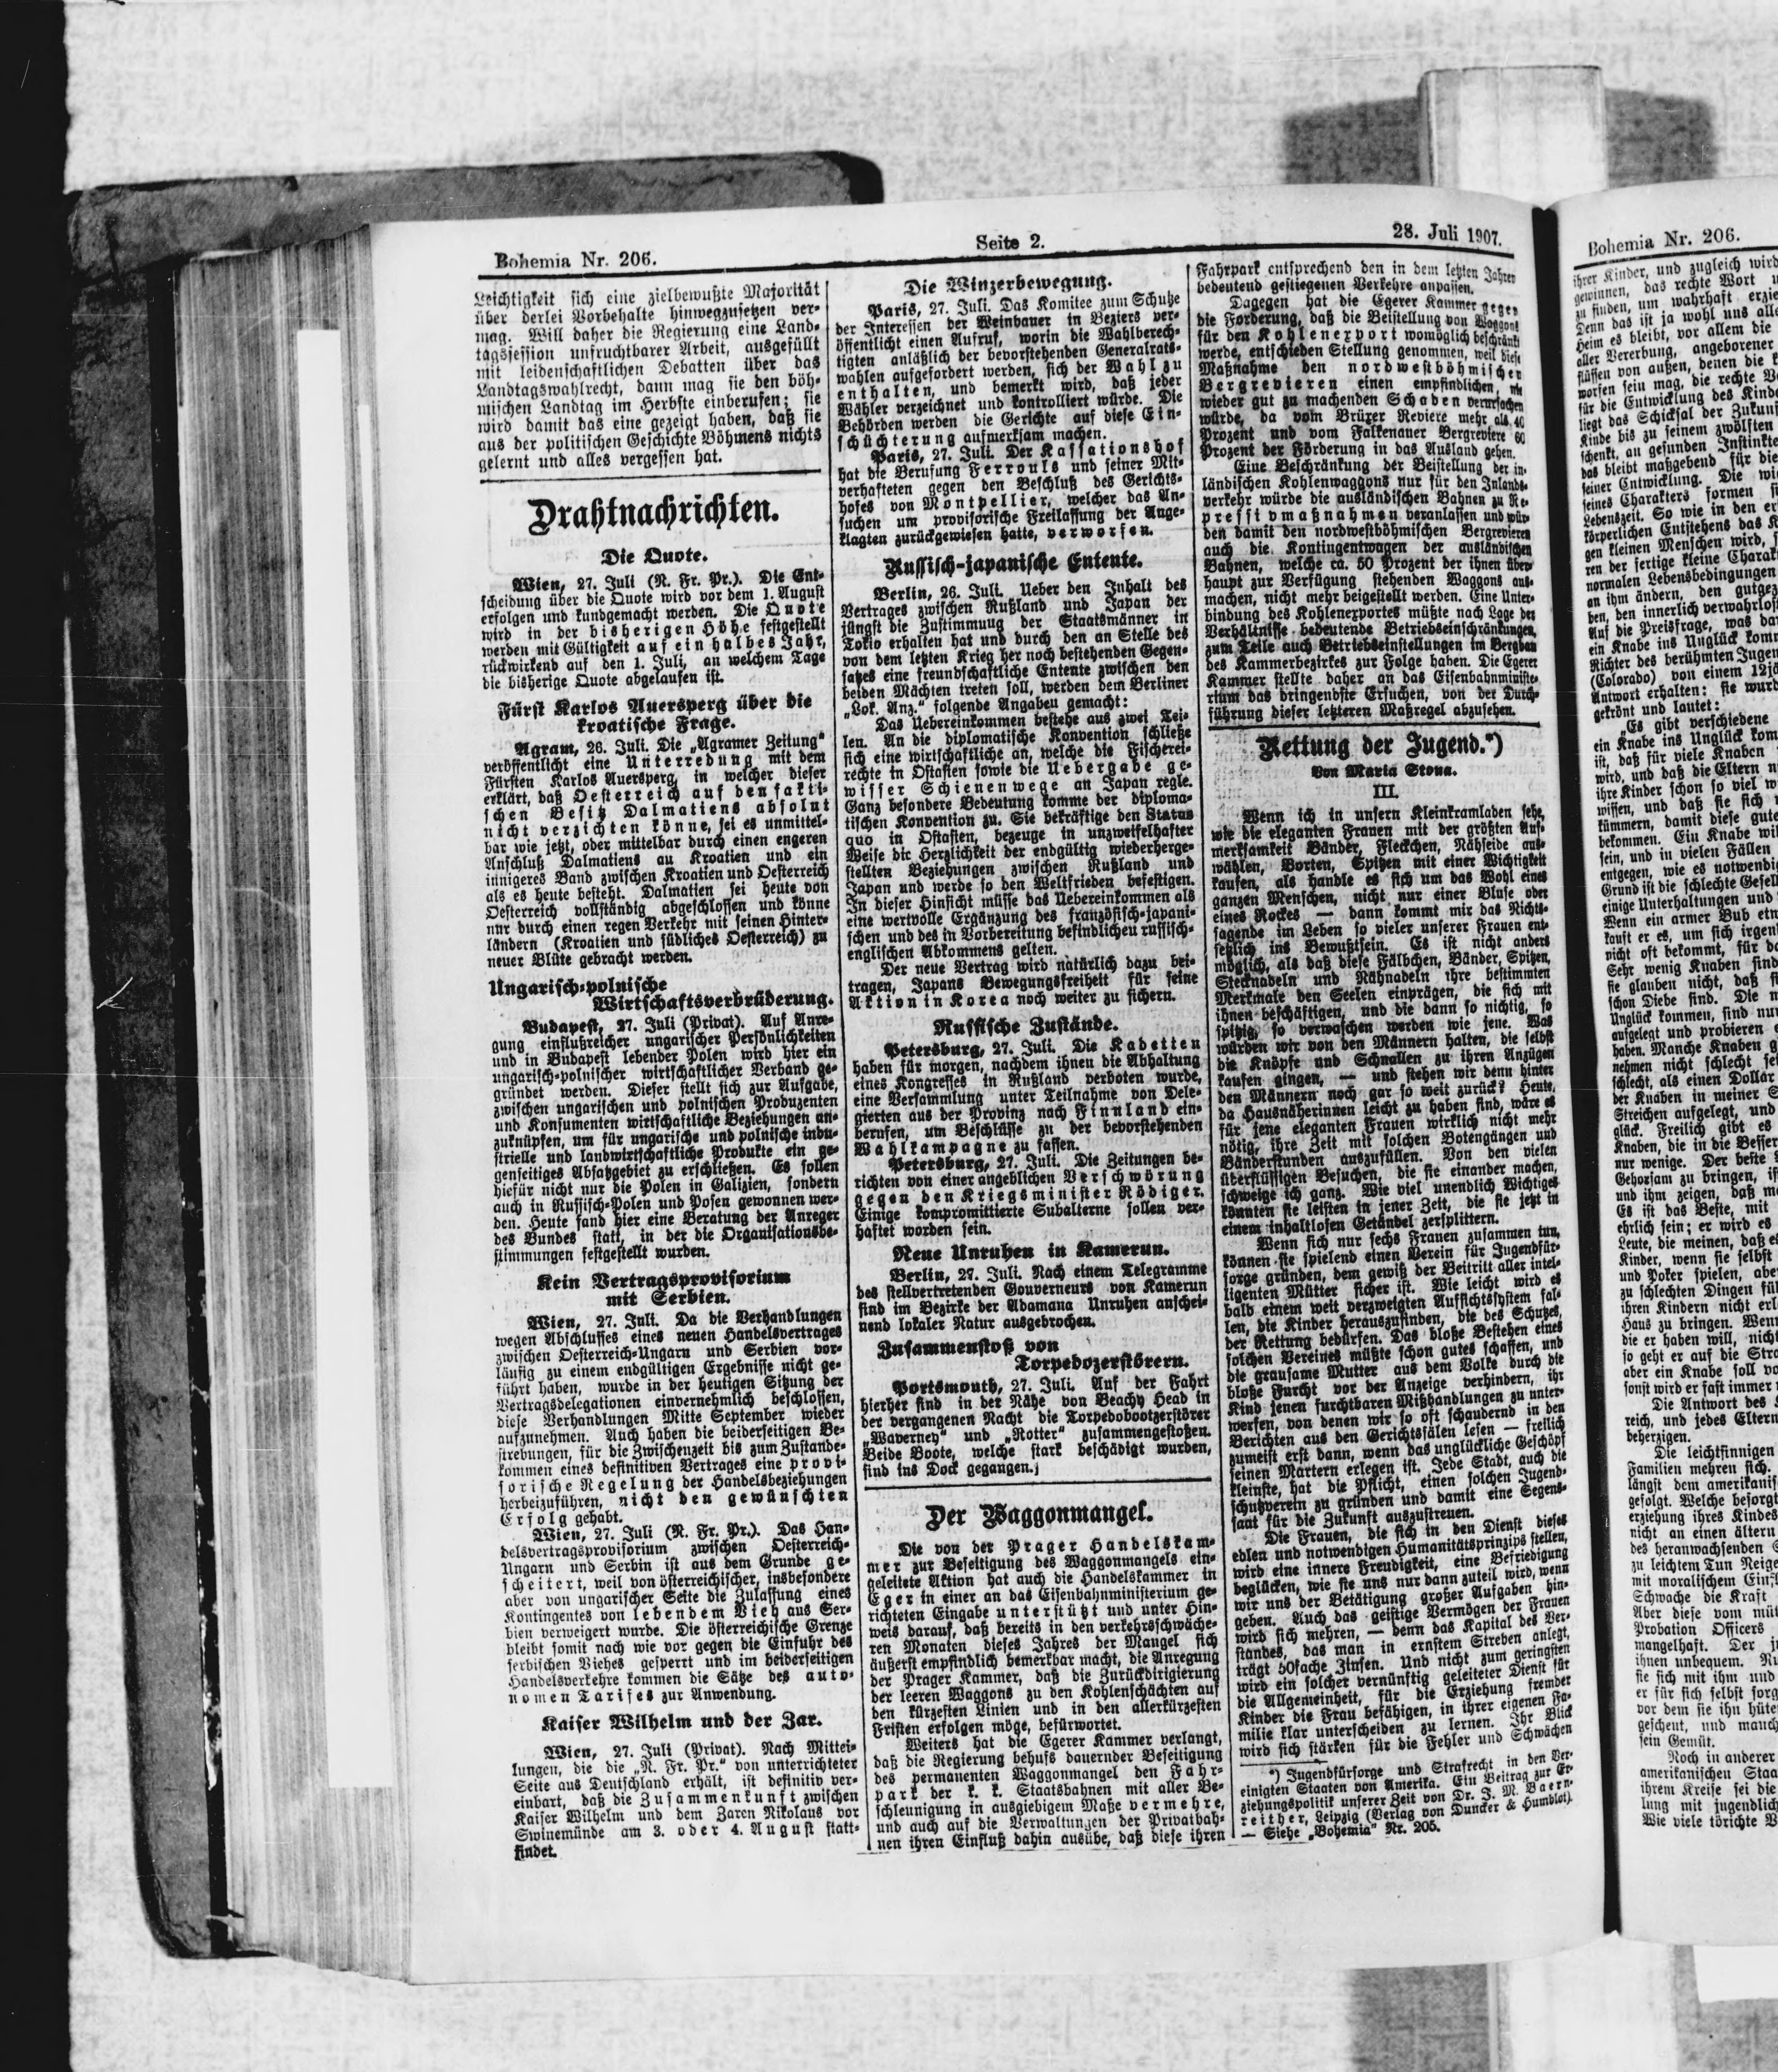 Bohemia Nr. 206.
Seite 2.
28. Juli 1907.
Leichtigkeit sich eine zielbewußte Majorität
über derlei Vorbehalte hinwegzusetzen ver-
mag. Will daher die Regierung eine Land-
tagssession unfruchtbarer Arbeit, ausgefüllt
mit leidenschaftlichen Debatten über das
Landtagswahlrecht, dann mag sie den böh-
mischen Landtag im Herbste einberufen; sie
wird damit das eine gezeigt haben, daß sie
aus der politischen Geschichte Böhmens nichts
gelernt und alles vergessen hat.
Drahtnachrichten.
Die Quote.
Wien, 27. Juli (N. Fr. Pr.). Die Ent-
scheidung über die Quote wird vor dem 1. August
erfolgen und kundgemacht werden. Die Quote
wird in der bisherigen Höhe festgestellt
werden mit Gültigkeit auf ein halbes Jahr,
rückwirkend auf den 1. Juli, an welchem Tage
die bisherige Quote abgelaufen ist.
Fürst Karlos Auersperg über die
kroatische Frage.
Agram, 26. Juli. Die „Agramer Zeitung“
veröffentlicht eine Unterredung mit dem
Fürsten Karlos Auersperg, in welcher dieser
erklärt, daß Oesterreich auf den fakti-
schen Besitz Dalmatiens absolut
nicht verzichten könne, sei es unmittel-
bar wie jetzt, oder mittelbar durch einen engeren
Anschluß Dalmatiens au Kroatien und ein
innigeres Band zwischen Kroatien und Oesterreich
als es heute besteht. Dalmatien sei heute von
Oesterreich vollständig abgeschlossen und könne
nur durch einen regen Verkehr mit seinen Hinter-
ländern (Kroatien und südliches Oesterreich) zu
neuer Blüte gebracht werden.
Ungarisch-polnische
Wirtschaftsverbrüderung.
Budapest, 27. Juli (Privat). Auf Anre-
gung einflußreicher ungarischer Persönlichkeiten
und in Budapest lebender Polen wird hier ein
ungarisch-polnischer wirtschaftlicher Verband ge-
gründet werden. Dieser stellt sich zur Aufgabe,
zwischen ungarischen und polnischen Produzenten
und Konsumenten wirtschaftliche Beziehungen an-
zuknüpfen, um für ungarische und polnische indu-
strielle und landwirtschaftliche Produkte ein ge-
genseitiges Absatzgebiet zu erschließen. Es sollen
hiefür nicht nur die Polen in Galizien, sondern
auch in Russisch-Polen und Posen gewonnen wer-
den. Heute fand hier eine Beratung der Anreger
des Bundes statt, in der die Organisationsbe-
stimmungen festgestellt wurden.
Kein Vertragsprovisorium
mit Serbien.
Wien, 27. Juli. Da die Verhandlungen
wegen Abschlusses eines neuen Handelsvertrages
zwischen Oesterreich-Ungarn und Serbien vor-
läufig zu einem endgültigen Ergebnisse nicht ge-
führt haben, wurde in der heutigen Sitzung der
Vertragsdelegationen einvernehmlich beschlossen,
diese Verhandlungen Mitte September wieder
aufzunehmen. Auch haben die beiderseitigen Be-
strebungen, für die Zwischenzeit bis zum Zustande-
kommen eines definitiven Vertrages eine provi-
sorische Regelung der Handelsbeziehungen
herbeizuführen, nicht den gewünschten
Erfolg gehabt.
Wien, 27. Juli (N. Fr. Pr.). Das Han-
delsvertragsprovisorium zwischen Oesterreich-
Ungarn und Serbin ist aus dem Grunde ge-
scheitert, weil von österreichischer, insbesondere
aber von ungarischer Seite die Zulassung eines
Kontingentes von lebendem Vieh aus Ser-
bien verweigert wurde. Die österreichische Grenze
bleibt somit nach wie vor gegen die Einfuhr des
serbischen Viehes gesperrt und im beiderseitigen
Handelsverkehre kommen die Sätze des auto-
nomen Tarifes zur Anwendung.
Kaiser Wilhelm und der Zar.
Wien, 27. Juli (Privat). Nach Mittei-
lungen, die die „N. Fr. Pr.“ von unterrichteter
Seite aus Deutschland erhält, ist definitiv ver-
einbart, daß die Zusammenkunft zwischen
Kaiser Wilhelm und dem Zaren Nikolaus vor
Swinemünde am 3. oder 4. August statt-
findet.
Die Winzerbewegung.
Paris, 27. Juli. Das Komitee zum Schutze
der Interessen der Weinbauer in Beziers ver-
öffentlicht einen Aufruf, worin die Wahlberech-
tigten anläßlich der bevorstehenden Generalrats-
wahlen aufgefordert werden, sich der Wahl zu
enthalten, und bemerkt wird, daß jeder
Wähler verzeichnet und kontrolliert würde. Die
Behörden werden die Gerichte auf diese Ein-
schüchterung aufmerksam machen.
Paris, 27. Juli. Der Kassationshof
hat die Berufung Ferrouls und seiner Mit-
verhafteten gegen den Beschluß des Gerichts-
hofes von Montpellier, welcher das An-
suchen um provisorische Freilassung der Ange-
klagten zurückgewiesen hatte, verworfen.
Russisch-japanische Entente.
Berlin, 26. Juli. Ueber den Inhalt des
Vertrages zwischen Rußland und Japan der
jüngst die Zustimmuug der Staatsmänner in
Tokio erhalten hat und durch den an Stelle des
von dem letzten Krieg her noch bestehenden Gegen-
satzes eine freundschaftliche Entente zwischen den
beiden Mächten treten soll, werden dem Berliner
„Lok. Anz.“ folgende Angabeu gemacht:
Das Uebereinkommen bestehe aus zwei Tei-
len. An die diplomatische Konvention schließe
sich eine wirtschaftliche an, welche die Fischerei-
rechte in Ostasien sowie die Uebergabe ge-
wisser Schienenwege an Japan regle.
Ganz besondere Bedeutung komme der diploma-
tischen Konvention zu. Sie bekräftige den Status
quo in Ostasien, bezeuge in unzweifelhafter
Weise die Herzlichkeit der endgültig wiederherge-
stellten Beziehungen zwischen Rußland und
Japan und werde so den Weltfrieden befestigen.
In dieser Hinsicht müsse das Uebereinkommen als
eine wertvolle Ergänzung des französisch-japani-
schen und des in Vorbereitung befindlicheu russisch-
englischen Abkommens gelten.
Der neue Vertrag wird natürlich dazu bei-
tragen, Japans Bewegungsfreiheit für seine
Aktion in Korea noch weiter zu sichern.
Russische Zustände.
Petersburg, 27. Juli. Die Kadetten
haben für morgen, nachdem ihnen die Abhaltung
eines Kongresses in Rußland verboten wurde,
eine Versammlung unter Teilnahme von Dele-
gierten aus der Provinz nach Finnland ein-
berufen, um Beschlüsse zu der bevorstehenden
Wahlkampagne zu fassen.
Petersburg, 27. Juli. Die Zeitungen be-
richten von einer angeblichen Verschwörung
gegen den Kriegsminister Rödiger.
Einige kompromittierte Subalterne sollen ver-
haftet worden sein.
Neue Unruhen in Kamerun.
Berlin, 27. Juli. Nach einem Telegramme
des stellvertretenden Gouverneurs von Kamerun
sind im Bezirke der Adamana Unruhen anschei-
nend lokaler Natur ausgebrochen.
Zusammenstoß von
Torpedozerstörern.
Portsmouth, 27. Juli. Auf der Fahrt
hierher sind in der Nähe von Beachy Head in
der vergangenen Nacht die Torpedobootzerstörer
„Waverney“ und „Rotter“ zusammengestoßen.
Beide Boote, welche stark beschädigt wurden,
sind ins Dock gegangen.
Der Waggonmangel.
Die von der Prager Handelskam-
mer zur Beseitigung des Waggonmangels ein-
geleitete Aktion hat auch die Handelskammer in
Eger in einer an das Eisenbahnministerium ge-
richteten Eingabe unterstützt und unter Hin-
weis darauf, daß bereits in den verkehrsschwäche-
ren Monaten dieses Jahres der Mangel sich
äußerst empfindlich bemerkbar macht, die Anregung
der Prager Kammer, daß die Zurückdirigierung
der leeren Waggons zu den Kohlenschächten auf
den kürzesten Linien und in den allerkürzesten
Fristen erfolgen möge, befürwortet.
Weiters hat die Egerer Kammer verlangt,
daß die Regierung behufs dauernder Beseitigung
des permanenten Waggonmangel den Fahr-
park der k. k. Staatsbahnen mit aller Be-
schleunigung in ausgiebigem Maße vermehre,
und auch auf die Verwaltungen der Privatbah-
nen ihren Einfluß dahin ausübe, daß diese ihren
Fahrpark entsprechend den in dem letzten Jahren
bedeutend gestiegenen Verkehre anpassen.
Dagegen hat die Egerer Kammer gegen
die Forderung, daß die Beistellung von Waggons
für den Kohlenexport womöglich beschränkt
werde, entschieden Stellung genommen, weil diese
Maßnahme den nordwestböhmischen
Bergrevieren einen empfindlichen, nie
wieder gut zu machenden Schaden verursachen
würde, da vom Brüxer Reviere mehr als 40
Prozent und vom Falkenauer Bergreviere 60
Prozent der Förderung in das Ausland gehen.
Eine Beschränkung der Beistellung der in-
ländischen Kohlenwaggons nur für den Inlands-
verkehr würde die ausländischen Bahnen zu Re-
pressivmaßnahmen veranlassen und wür-
den damit den nordwestböhmischen Bergrevieren
auch die Kontingentwagen der ausländischen
Bahnen, welche ca. 50 Prozent der ihnen über-
haupt zur Verfügung stehenden Waggons aus-
machen, nicht mehr beigestellt werden. Eine Unter-
bindung des Kohlenexportes müßte nach Lage der
Verhältnisse bedeutende Betriebseinschränkungen,
zum Teile auch Betriebseinstellungen im Bergbau
des Kammerbezirkes zur Folge haben. Die Egerer
Kammer stellte daher an das Eisenbahnministe-
rium das dringendste Ersuchen, von der Durch-
führung dieser letzteren Maßregel abzusehen.
Rettung der Jugend.*)
Von Maria Stona.
III.
Wenn ich in unsern Kleinkramladen sehe,
wie die eleganten Frauen mit der größten Auf-
merksamkeit Bänder, Fleckchen, Nähseide aus-
wählen, Borten, Spitzen mit einer Wichtigkeit
kaufen, als handle es sich um das Wohl eines
ganzen Menschen, nicht nur einer Bluse oder
eines Rockes — dann kommt mir das Nichts-
sagende im Leben so vieler unserer Frauen ent-
setzlich ins Bewußtsein. Es ist nicht anders
möglich, als daß diese Fälbchen, Bänder, Spitzen,
Stecknadeln und Nähnadeln ihre bestimmten
Merkmale den Seelen einprägen, die sich mit
ihnen beschäftigen, und die dann so nichtig, so
spitzig, so verwaschen werden wie jene. Was
würden wir von den Männern halten, die selbst
die Knöpfe und Schnallen zu ihren Anzügen
kaufen gingen, — und stehen wir denn hinter
den Männern noch gar so weit zurück? Heute,
da Hausnäherinnen leicht zu haben sind, wäre es
für jene eleganten Frauen wirklich nicht mehr
nötig, ihre Zeit mit solchen Botengängen und
Bänderstunden auszufüllen. Von den vielen
überflüssigen Besuchen, die sie einander machen,
schweige ich ganz. Wie viel unendlich Wichtiges
könnten sie leisten in jener Zeit, die sie jetzt in
einem inhaltlosen Getändel zersplittern.
Wenn sich nur sechs Frauen zusammen tun,
können sie spielend einen Verein für Jugendfür-
sorge gründen, dem gewiß der Beitritt aller intel-
ligenten Mütter sicher ist. Wie leicht wird es
bald einem weit verzweigten Aufsichtssystem fal-
len, die Kinder herauszufinden, die des Schutzes,
der Rettung bedürfen. Das bloße Bestehen eines
solchen Vereines müßte schon gutes schaffen, und
die grausame Mutter aus dem Volke durch die
bloße Furcht vor der Anzeige verhindern, ihr
Kind jenen furchtbaren Mißhandlungen zu unter-
werfen, von denen wir so oft schaudernd in den
Berichten aus den Gerichtssälen lesen — freilich
zumeist erst dann, wenn das unglückliche Geschöpf
seinen Martern erlegen ist. Jede Stadt, auch die
kleinste, hat die Pflicht, einen solchen Jugend-
schutzverein zu gründen und damit eine Segens-
saat für die Zukunft auszustreuen.
Die Frauen, die sich in den Dienst dieses
edlen und notwendigen Humanitätsprinzips stellen,
wird eine innere Freudigkeit, eine Befriedigung
beglücken, wie sie uns nur dann zuteil wird, wenn
wir uns der Betätigung großer Aufgaben hin-
geben. Auch das geistige Vermögen der Frauen
wird sich mehren, — denn das Kapital des Ver-
standes, das man in ernstem Streben anlegt,
trägt 50fache Zinsen. Und nicht zum geringsten
wird ein solcher vernünftig geleiteter Dienst für
die Allgemeinheit, für die Erziehung fremder
Kinder die Frau befähigen, in ihrer eigenen Fa-
milie klar unterscheiden zu lernen. Ihr Blick
wird sich stärken für die Fehler und Schwächen
*) Jugendfürsorge und Strafrecht in den Ver-
einigten Staaten von Amerika. Ein Beitrag zur Er-
ziehungspolitik unserer Zeit von Dr. J. M. Baern-
reither, Leipzig (Verlag von Duncker & Humblot).
— Siehe „Bohemia“ Nr. 205.
Bohemia Nr. 206.
ihrer Kinder, und zugleich wird
gewinnen, das rechte Wort
zu finden, um wahrhaft erzie
Denn das ist ja wohl uns alle
Heim es bleibt, vor allem die
aller Vererbung, angeborener
flüssen von außen, denen die
worfen sein mag, die rechte
für die Entwicklung des Kinde
liegt das Schicksal der Zukun
Kinde bis zu seinem zwölften
schenkt, an gesunden Instinkte
das bleibt maßgebend für die
seiner Entwicklung. Die
seines Charakters formen
Lebenszeit. So wie in den
körperlichen Entstehens das
gen kleinen Menschen wird,
ren der fertige kleine Charak
normalen Lebensbedingungen
an ihm ändern, den gutgez
ben, den innerlich verwahrlos
Auf die Preisfrage, was
ein Knabe ins Unglück komm
Richter des berühmten Jugen
(Colorado) von einem
Antwort erhalten: sie wurd
gekrönt und lautet:
„Es gibt verschiedene
ein Knabe ins Unglück kom
ist, daß für viele Knaben
wird, und daß die Eltern
ihre Kinder schon so viel
wissen, und daß sie sich
kümmern, damit diese gute
bekommen. Ein Knabe wil
sein, und in vielen Fällen
entgegen, wie es notwendig
Grund ist die schlechte Gesell
einige Unterhaltungen und
Wenn ein armer Bub etw
kauft er es, um sich irgen
nicht oft bekommt, für
Sehr wenig Knaben sind
sie glauben nicht, daß
schon Diebe sind. Die
Unglück kommen, sind nur
aufgelegt und probieren
haben. Manche Knaben
nehmen nicht schlecht
schlecht, als einen Dollar
der Knaben in meiner
Streichen aufgelegt, und
glück. Freilich gibt es
Knaben, die in die Besser
nur wenige. Der beste
Gehorsam zu bringen,
und ihm zeigen, daß
Es ist das Beste, mit
ehrlich sein; er wird es
Leute, die meinen, daß
Kinder, wenn sie selbst
und Poker spielen, abe
zu schlechten Dingen
ihren Kindern nicht erl
Haus zu bringen. Wen
die er haben will, nicht
so geht er auf die Stra
aber ein Knabe soll
sonst wird er fast immer
Die Antwort des
reich, und jedes Eltern
beherzigen.
Die leichtsinnigen
Familien mehren sich.
längst dem amerikanis
gefolgt. Welche besorgt
erziehung ihres Kindes
nicht an einen ältern
des heranwachsenden
zu leichtem Tun Neige
mit moralischem Einfl
Schwäche die Kraft
Aber diese vom müt
Probation Officers
mangelhaft. Der
ihnen unbequem.
sie sich mit ihm und
er für sich selbst sorg
vor dem sie ihn hüte
gescheut, und manch
sein Gemüt.
Noch in anderer
amerikanischen Staa
ihrem Kreise sei die
lung mit jugendlich
Wie viele törichte